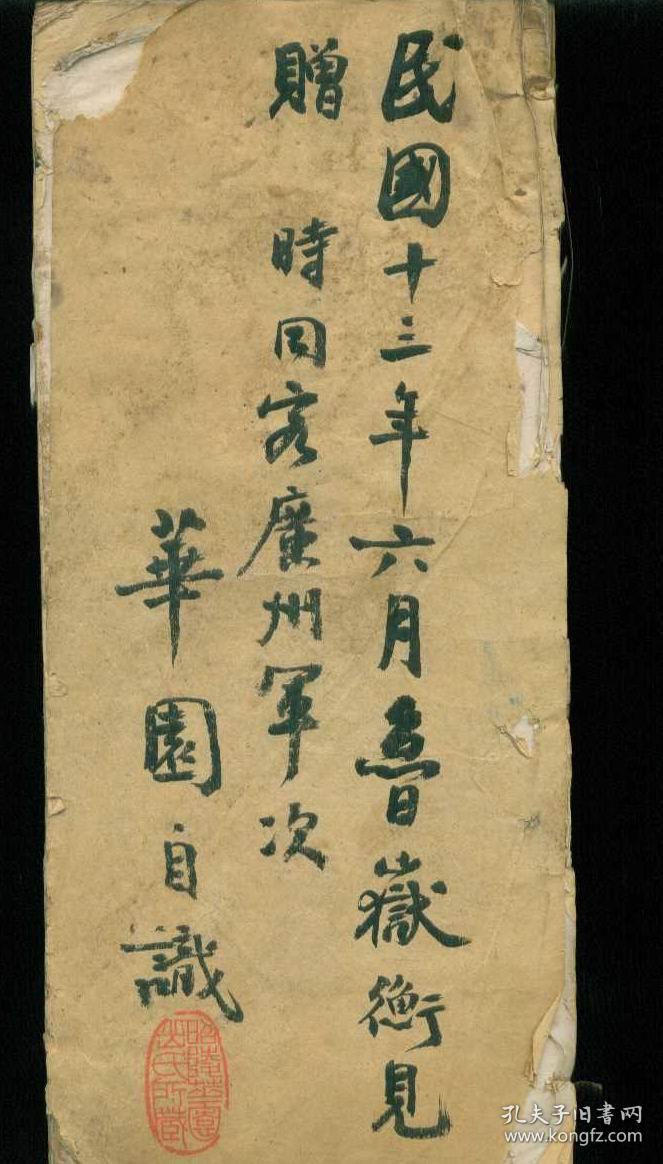 民國十三年六月魯嶽衡見
贈
時同客廣州軍次
華園自識
孔夫子旧书网
www.kongfz.com